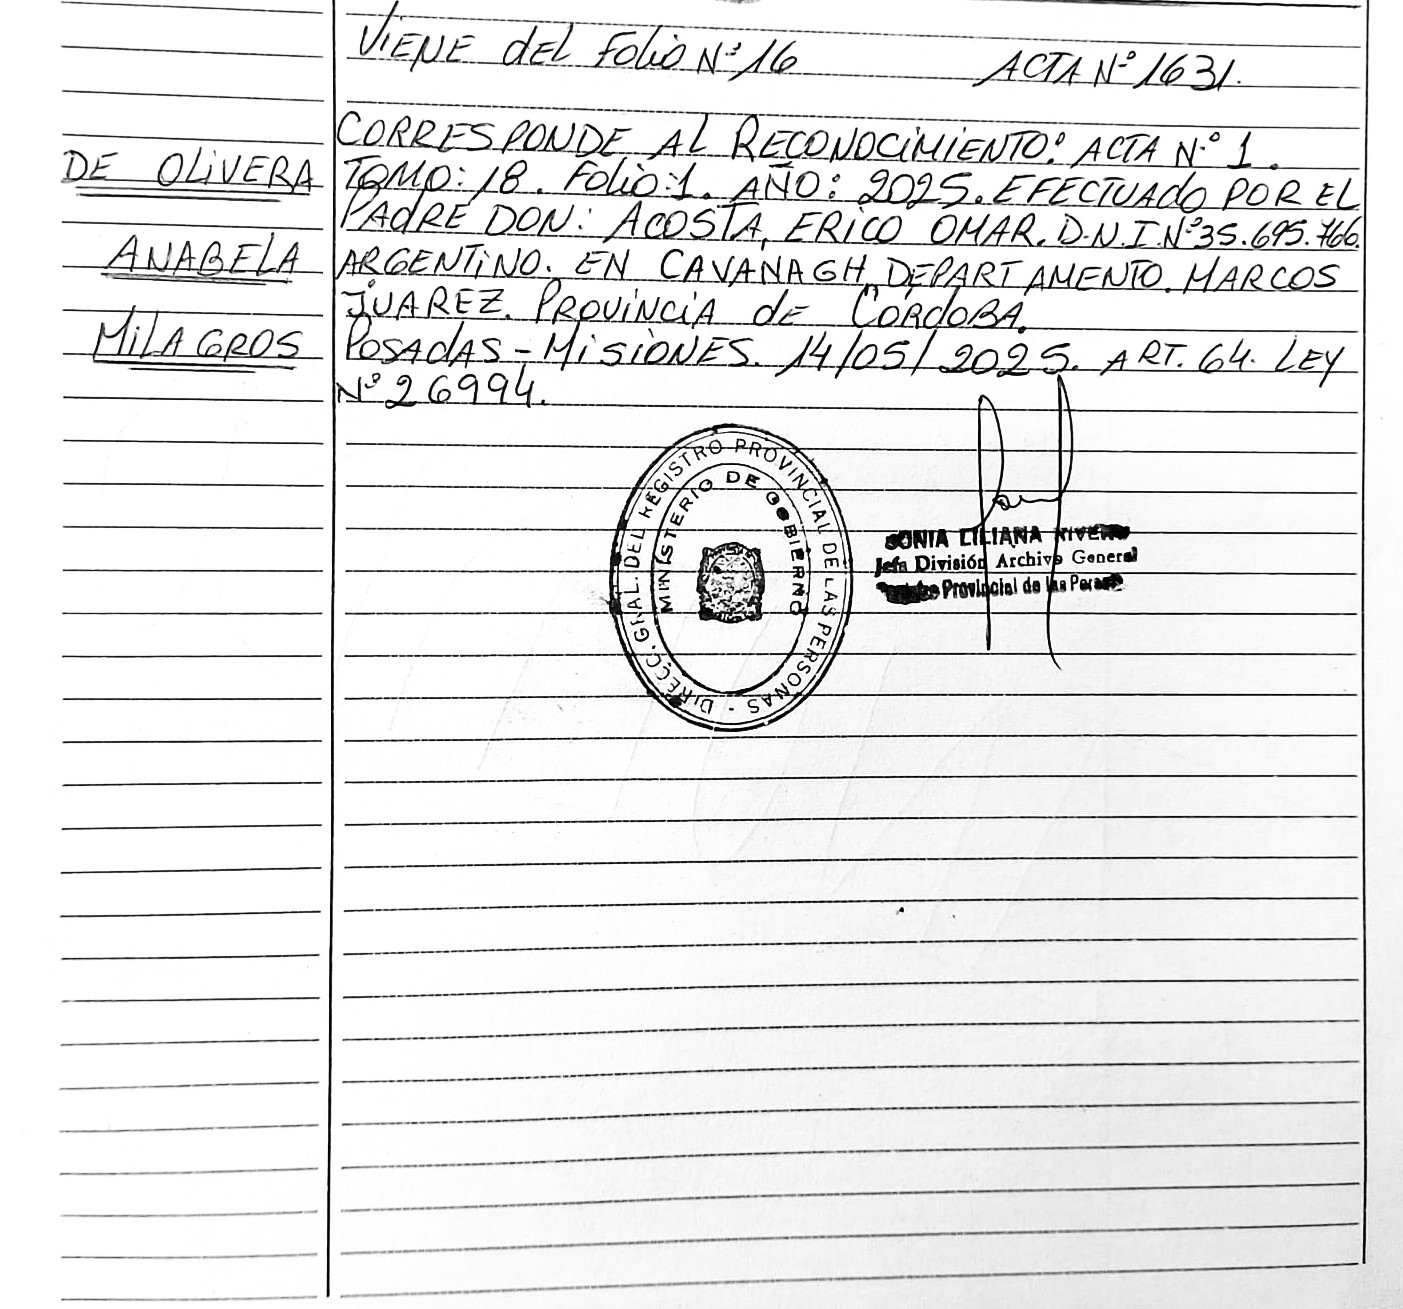 VIENE del Folio Nº 16 ACTA Nº 1631.
DE OLIVERA
ANABELA
MILAGROS
CORRESPONDE AL RECONOCIMIENTO: ACTA Nº 1.
TOMO: 18. Folio: 1. AÑO: 2025. EFECTUADO POR EL
PADRE DON: ACOSTA, ERICO OMAR. D.N.I. Nº 35.695.766.
ARGENTINO. EN CAVANAGH, DEPARTAMENTO. MARCOS
JUAREZ. PROVINCIA de CORDOBA.
POSADAS - MISIONES. 14/05/2025. ART. 64. LEY
Nº 26994.
DIRECC. GRAL. DEL REGISTRO PROVINCIAL DE LAS PERSONAS -
MINISTERIO DE GOBIERNO
SONIA LILIANA
Jefa División Archivo General
Provincial de las